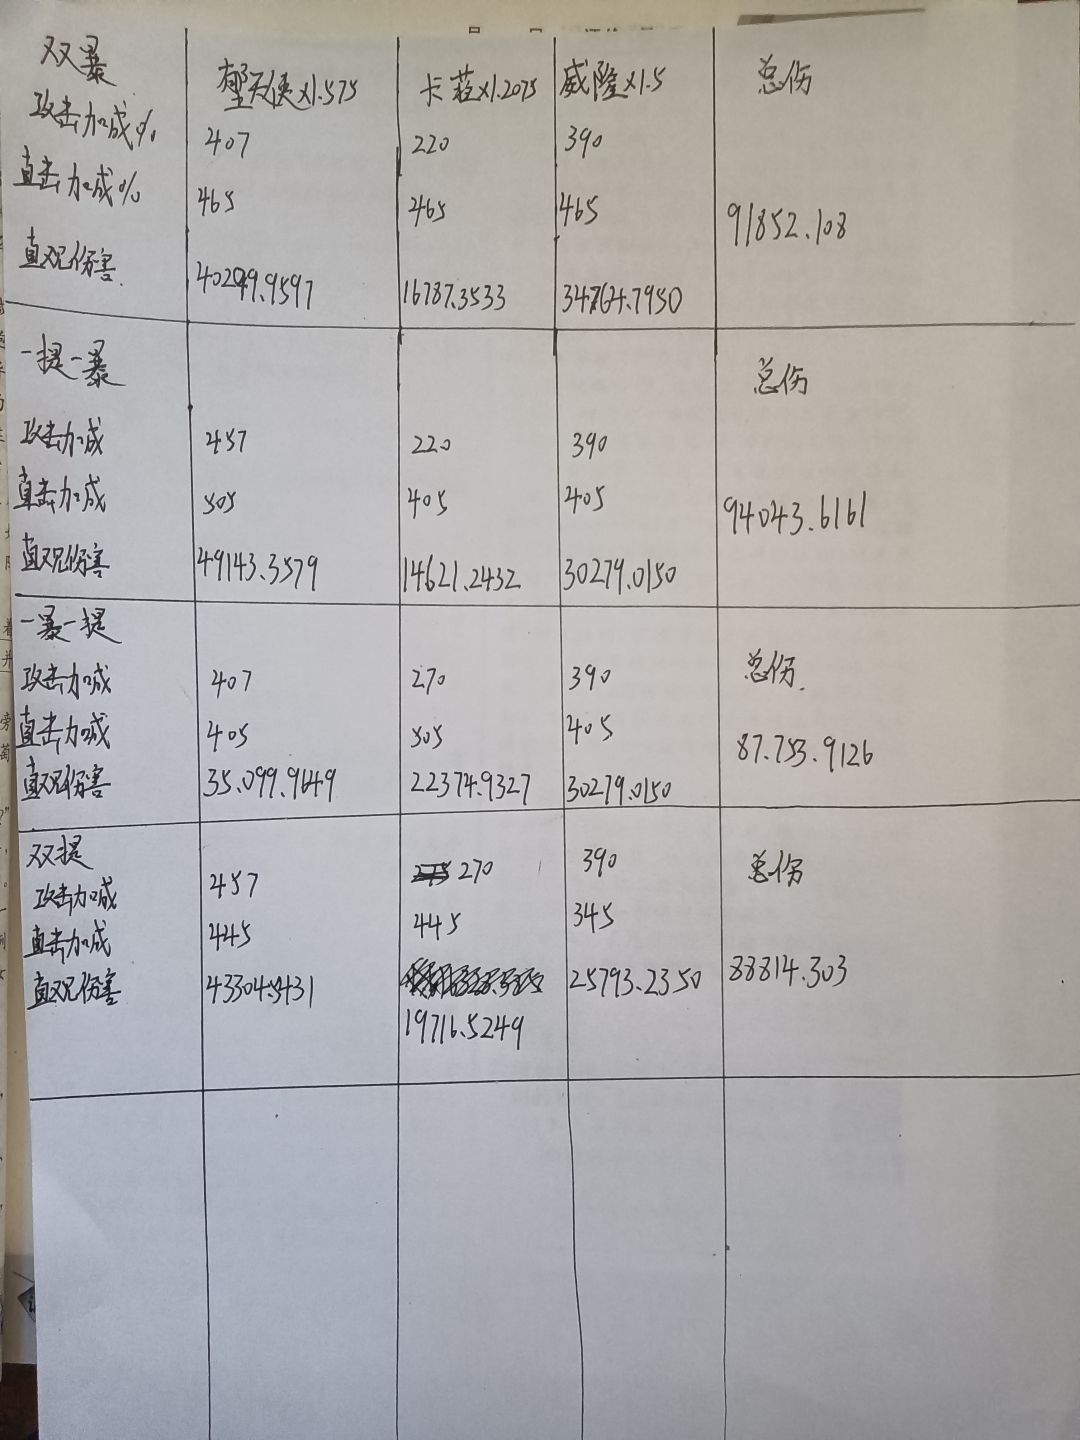 双暴 堕天使x1.575 卡菈x1.2075 威隆x1.5 总伤
攻击加成% 407 220 390
直击加成% 465 465 465 91852.108
直观伤害 16787.3533 34764.7950
一提一暴 总伤
攻击加成 457 220 390
直击加成 505 405 405 94043.6161
直观伤害 49143.3579 14621.2432 30279.0150
一暴一提 总伤
攻击加成 407 270 390
直击加成 405 505 405 87.753.9126
直观伤害 35.099.9649 22374.9327 30279.0150
双提 270 390 总伤
攻击加成 457
直击加成 445 445 345
直观伤害 25793.2350 88814.303
19716.5249